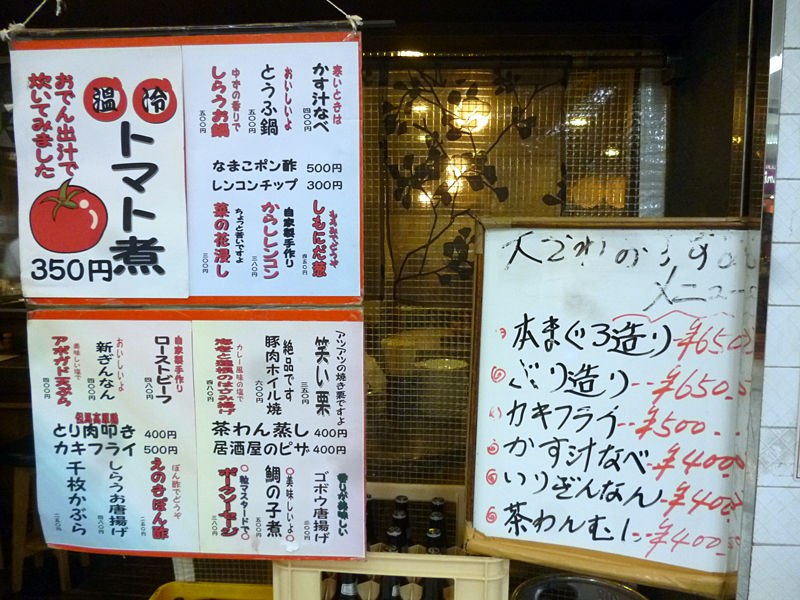 おでん出汁で
炊いてみました
温 冷
トマト煮
350円
寒いときは
かす汁なべ
四〇〇円
おいしいよ
とうふ鍋
五〇〇円
ゆずの香りで
しらうお鍋
五〇〇円
なまこポン酢 500円
レンコンチップ 300円
しもにだ葱
四五〇円
自家製手作り
からしレンコン
三八〇円
ちょっと苦いですよ
菜の花浸し
三〇〇円
自家製手作り
ローストビーフ
四八〇円
おいしいよ
新ぎんなん
四〇〇円
美味しい塩で
アボガド天ぷら
四〇〇円
但馬高原鶏
とり肉叩き 400円
カキフライ 500円
ぽん酢でどうぞ
えのきぽん酢
二五〇円
しらうお唐揚げ
四八〇円
千枚かぶら
二五〇円
アツアツの焼き栗ですよ
笑い栗
三五〇円
絶品です
豚肉ホイル焼
六〇〇円
カレー風味の塩で
四八〇円
茶わん蒸し 400円
居酒屋のピザ 400円
香りが美味しい
ゴボウ唐揚げ
三〇〇円
〇美味しいよ〇
鯛の子煮
五〇〇円
〇粒マスタードで〇
ポークソーセージ
三八〇円
メニュー
本まぐろ造り ¥650
ぶり造り ¥650
カキフライ ¥500
かす汁なべ ¥400
いりぎんなん ¥400
茶わんむし ¥400